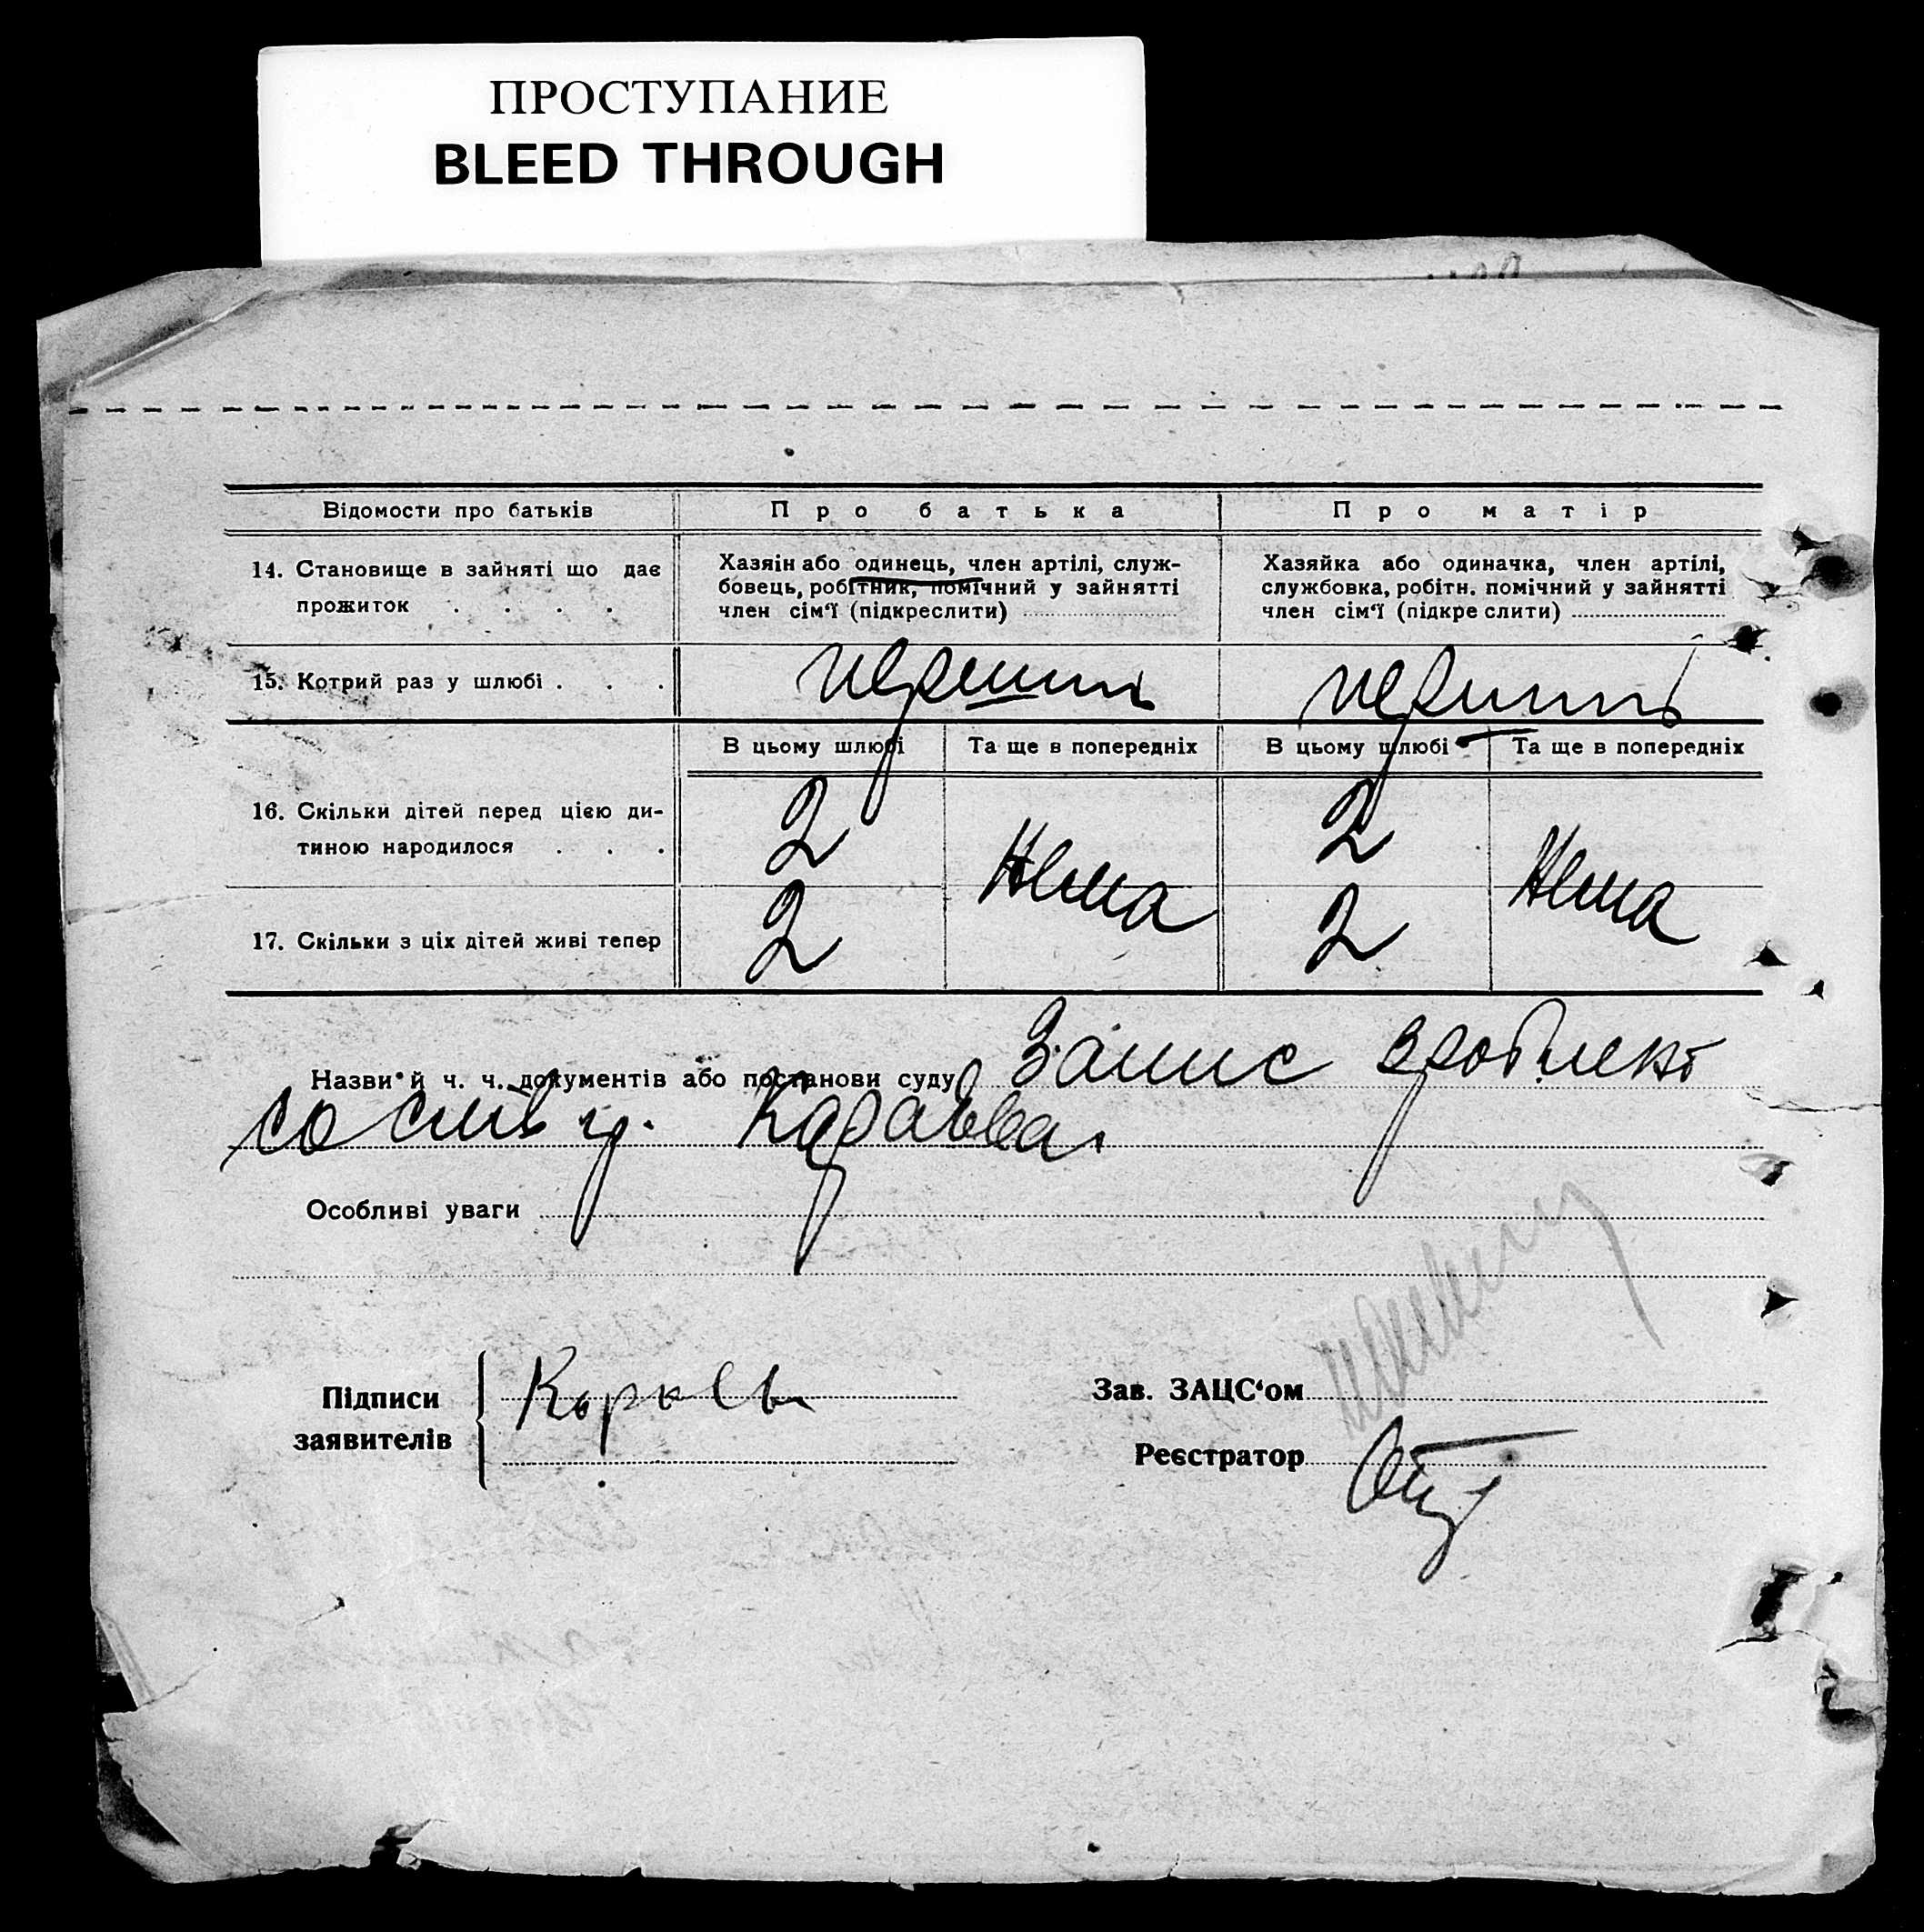 ПРОСТУПАНИЕ
BLEED THROUGH
Відомости про батьків
Про батька
Про матір
14. Становище в зайняті що дає
прожиток . . . .
Хазяїн або одинець, член артілі, служ-
бовець, робітник, помічний у зайнятті
член сім'ї (підкреслити)
Хазяйка або одиначка, член артілі,
службовка, робітн. помічний у зайнятті
член сім'ї (підкре слити)
15. Котрий раз у шлюбі . . .
перший
перший
В цьому шлюбі
Та ще в попередніх
В цьому шлюбі
Та ще в попередніх
16. Скільки дітей перед цією ди-
тиною народилося . . .
2
Нема
2
Нема
17. Скільки з ціх дітей живі тепер
2
2
Назви й ч. ч. документів або постанови суду Запис зроблено
со слів гр.
Особливі уваги
Підписи
заявителів
Зав. ЗАЦС'ом
Реєстратор